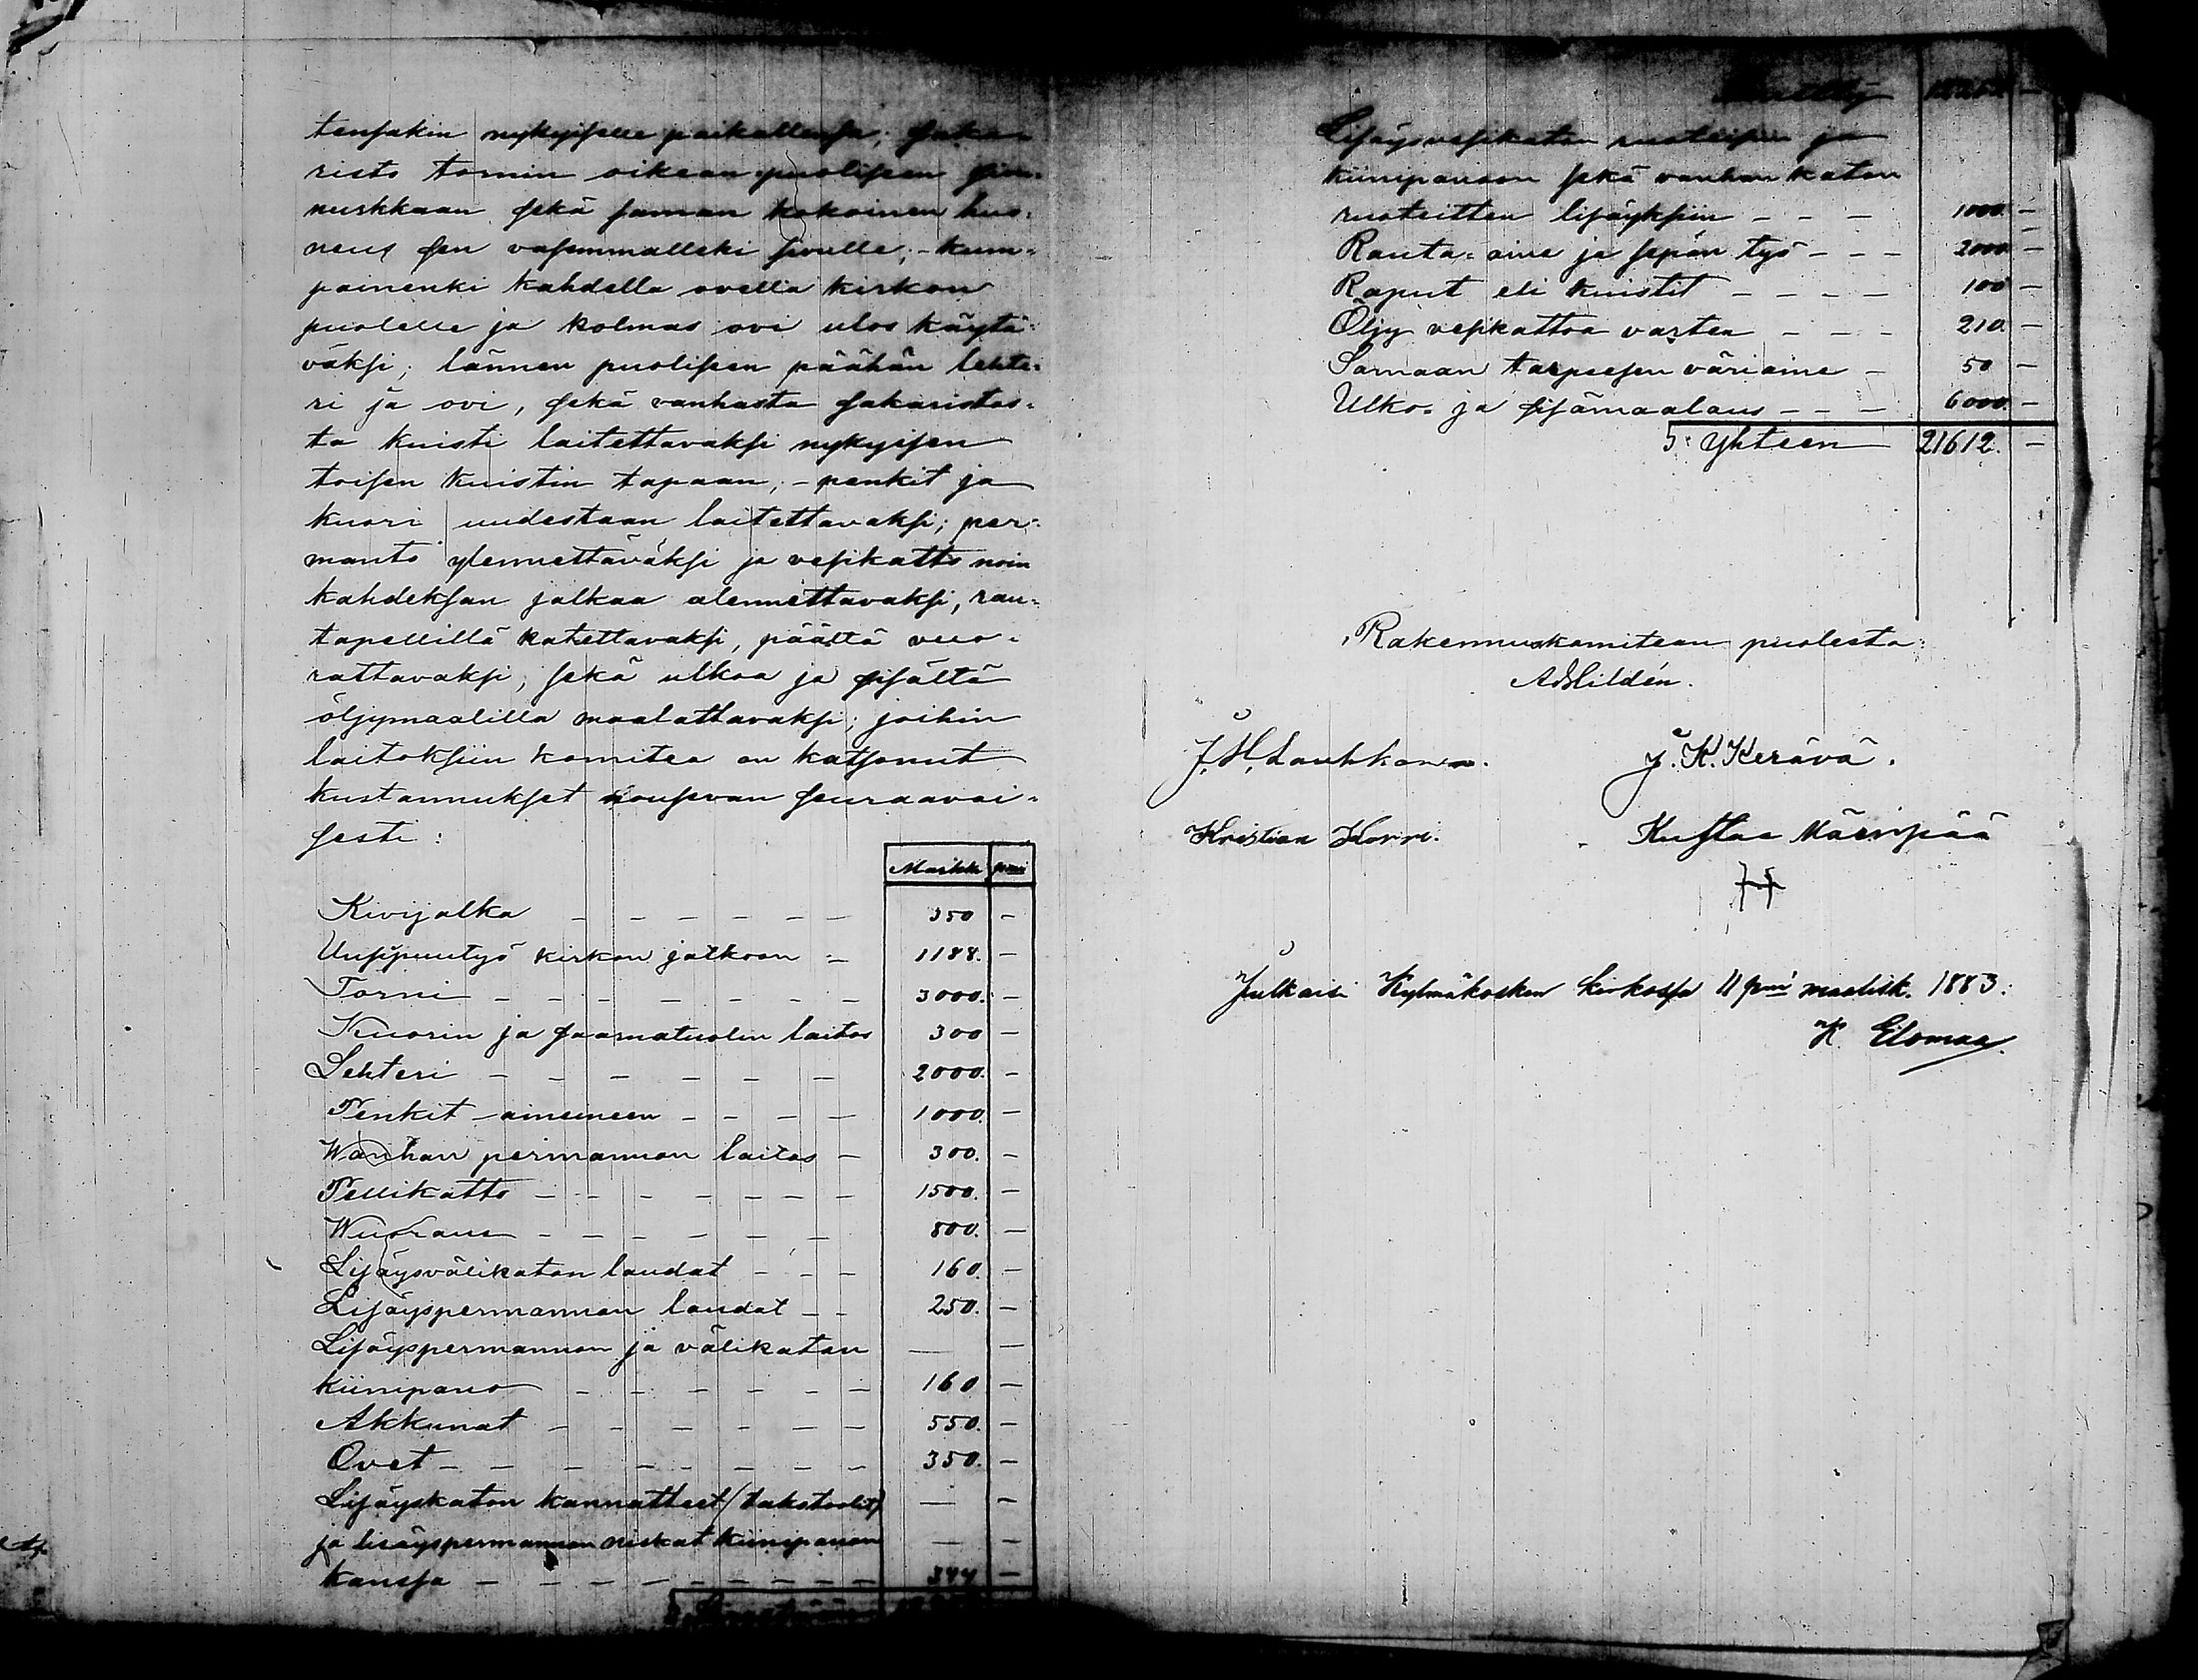 tensakin nykyiselle paikallensa; saka-
risto tornin oikean puoliseen sivu-
nurkkaan sekä saman kokoinen huo-
neus sen vasemmalleki sivulle; - kum-
painenki kahdella ovella kirkon
puolelle ja kolmas ovi ulos käytä-
väksi; lännen puoliseen päähän lehte-
ri ja ovi, sekä vanhasta sakaristos-
ta kuisti laitettavaksi nykyisen
toisen kuistin tapaan; - penkit ja
kuori uudestaan laitettavaksi; per-
manto ylennettäväksi ja vesikatto noin
kahdeksan jalkaa alennettavaksi, rau-
tapellillä katettavaksi, päältä vuo-
rattavaksi; sekä ulkoa ja sisältä
öljymaalilla maalattavaksi; joihin
laitoksiin komitea on katsonut
kustannukset nousevan seuraavai-
sesti:
Markk pmi
Kivijalka — — — — — — 350 —
Uusipuutyö kirkon jatkoon — 1188. —
Torni — — — — — — — 3000. —
Kuorin ja saarnatuolin laitos 300 —
Lehteri — — — — — — 2000. —
Penkit aineineen — — — — 1000. —
Wanhan permannon laitos — 300. —
Pellikatto — — — — — — — 1500. —
Wuoraus — — — — — — 800. —
Lisäysvälikaton laudat — — — 160. —
Lisäyspermannon laudat — — 250. —
Lisäyspermannon ja välikaton — —
kiinipano — — — — — — 160 —
Akkunat — — — — — — 550. —
Ovet — — — — — — — 350. —
Lisäyskaton kannatteet (takstoolit) — —
ja lisäyspermannon niskat kiinipanon — —
kanssa — — — — — — — — 344 —
Lisäysvesikaton ruoteisiin ja
kiinipanoon sekä vanhan katon
ruoteitten lisäyksiin — — — 1000. —
Rauta-aine ja sepän työ — — — 2000 —
Raput eli kuistit — — — — 100 —
Öljy vesikattoa varten — — — 210. —
Samaan tarpeesen väriaine — 50 —
Ulko- ja sisämaalaus — — — 6000. —
S: Yhteen 21612. —
Rakennuskomitean puolesta:
Ad Hildén.
J. H. Lauhkonen. J. K. Kerävä.
Kristian Korri. Kustaa Mäenpää
Julkaisi Kylmäkosken kirkossa 11 pnä maalisk. 1883:
K. Elomaa.